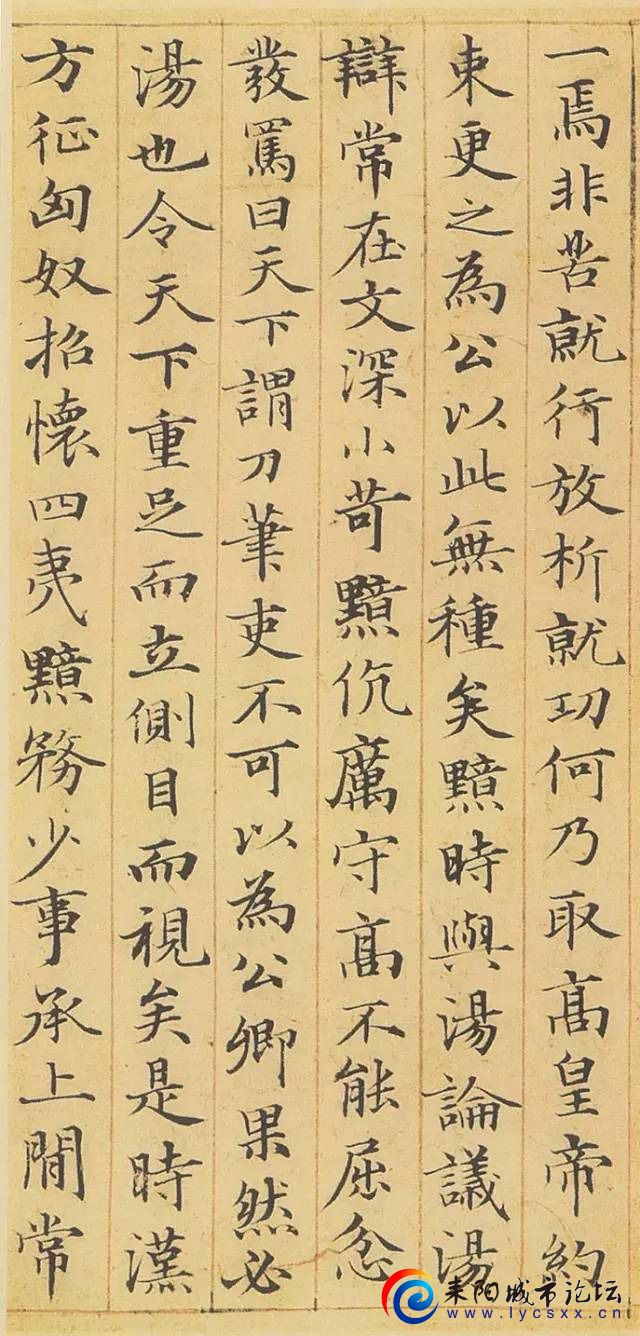 一焉非苦就行放析就功何乃取高皇帝約
束更之為公以此無種矣黯時與湯論議湯
辯常在文深小苛黯伉厲守高不能屈忿
發罵曰天下謂刀筆吏不可以為公卿果然必
湯也令天下重足而立側目而視矣是時漢
方征匈奴招懷四夷黯務少事承上間常
耒阳城市论坛
www.lycsxx.cn